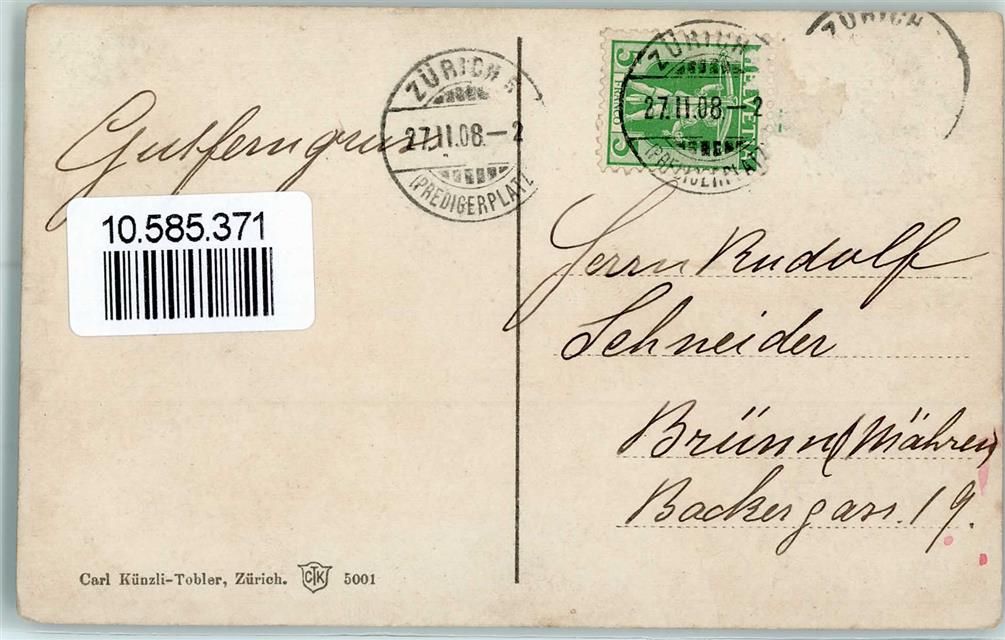 ZÜRICH
27.II.08.–2
(PREDIGERPLATZ
ZÜRICH
27.II.08.–2
(PREDIGERPLATZ
ZÜRICH
HELVETIA
FRANCO
5
5
Gutferngruss
10.585.371
Herrn Rudolf
Schneider
Brünn (Mähren)
Backergass. 19.
Carl Künzli-Tobler, Zürich. CTK 5001